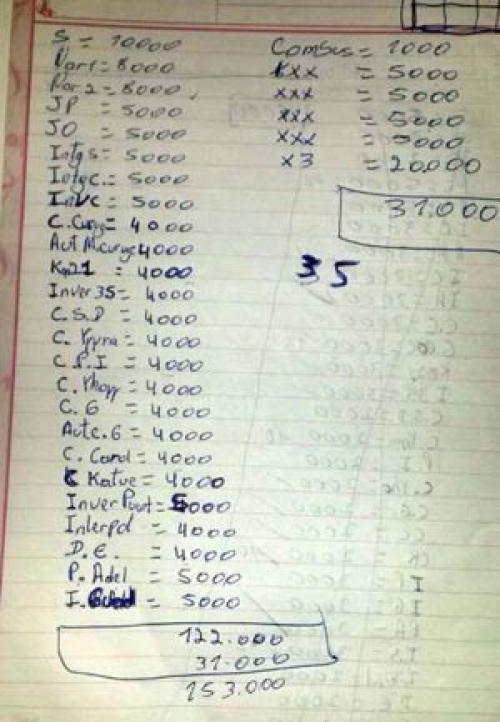 S = 10000
Nor1 = 8000
Nor2 = 8000
JP = 5000
JO = 5000
Intgs = 5000
Intgc. = 5000
InvC = 5000
C. Curyc = 4000
Aut M.curyc 4000
Km21 = 4000
Inver 35 = 4000
C.S.D = 4000
C. = 4000
C.P.I = 4000
C. = 4000
C. 6 = 4000
Autc. 6 = 4000
C. Carol = 4000
C Katve = 4000
Inver = 5000
Interpol = 4000
D.E. = 4000
P. Adel = 5000
I. = 5000
122.000
31.000
153.000
Combus = 1000
xxx = 5000
xxx = 5000
xxx = 5000
xxx = 5000
x3 = 20.000
31.000
35